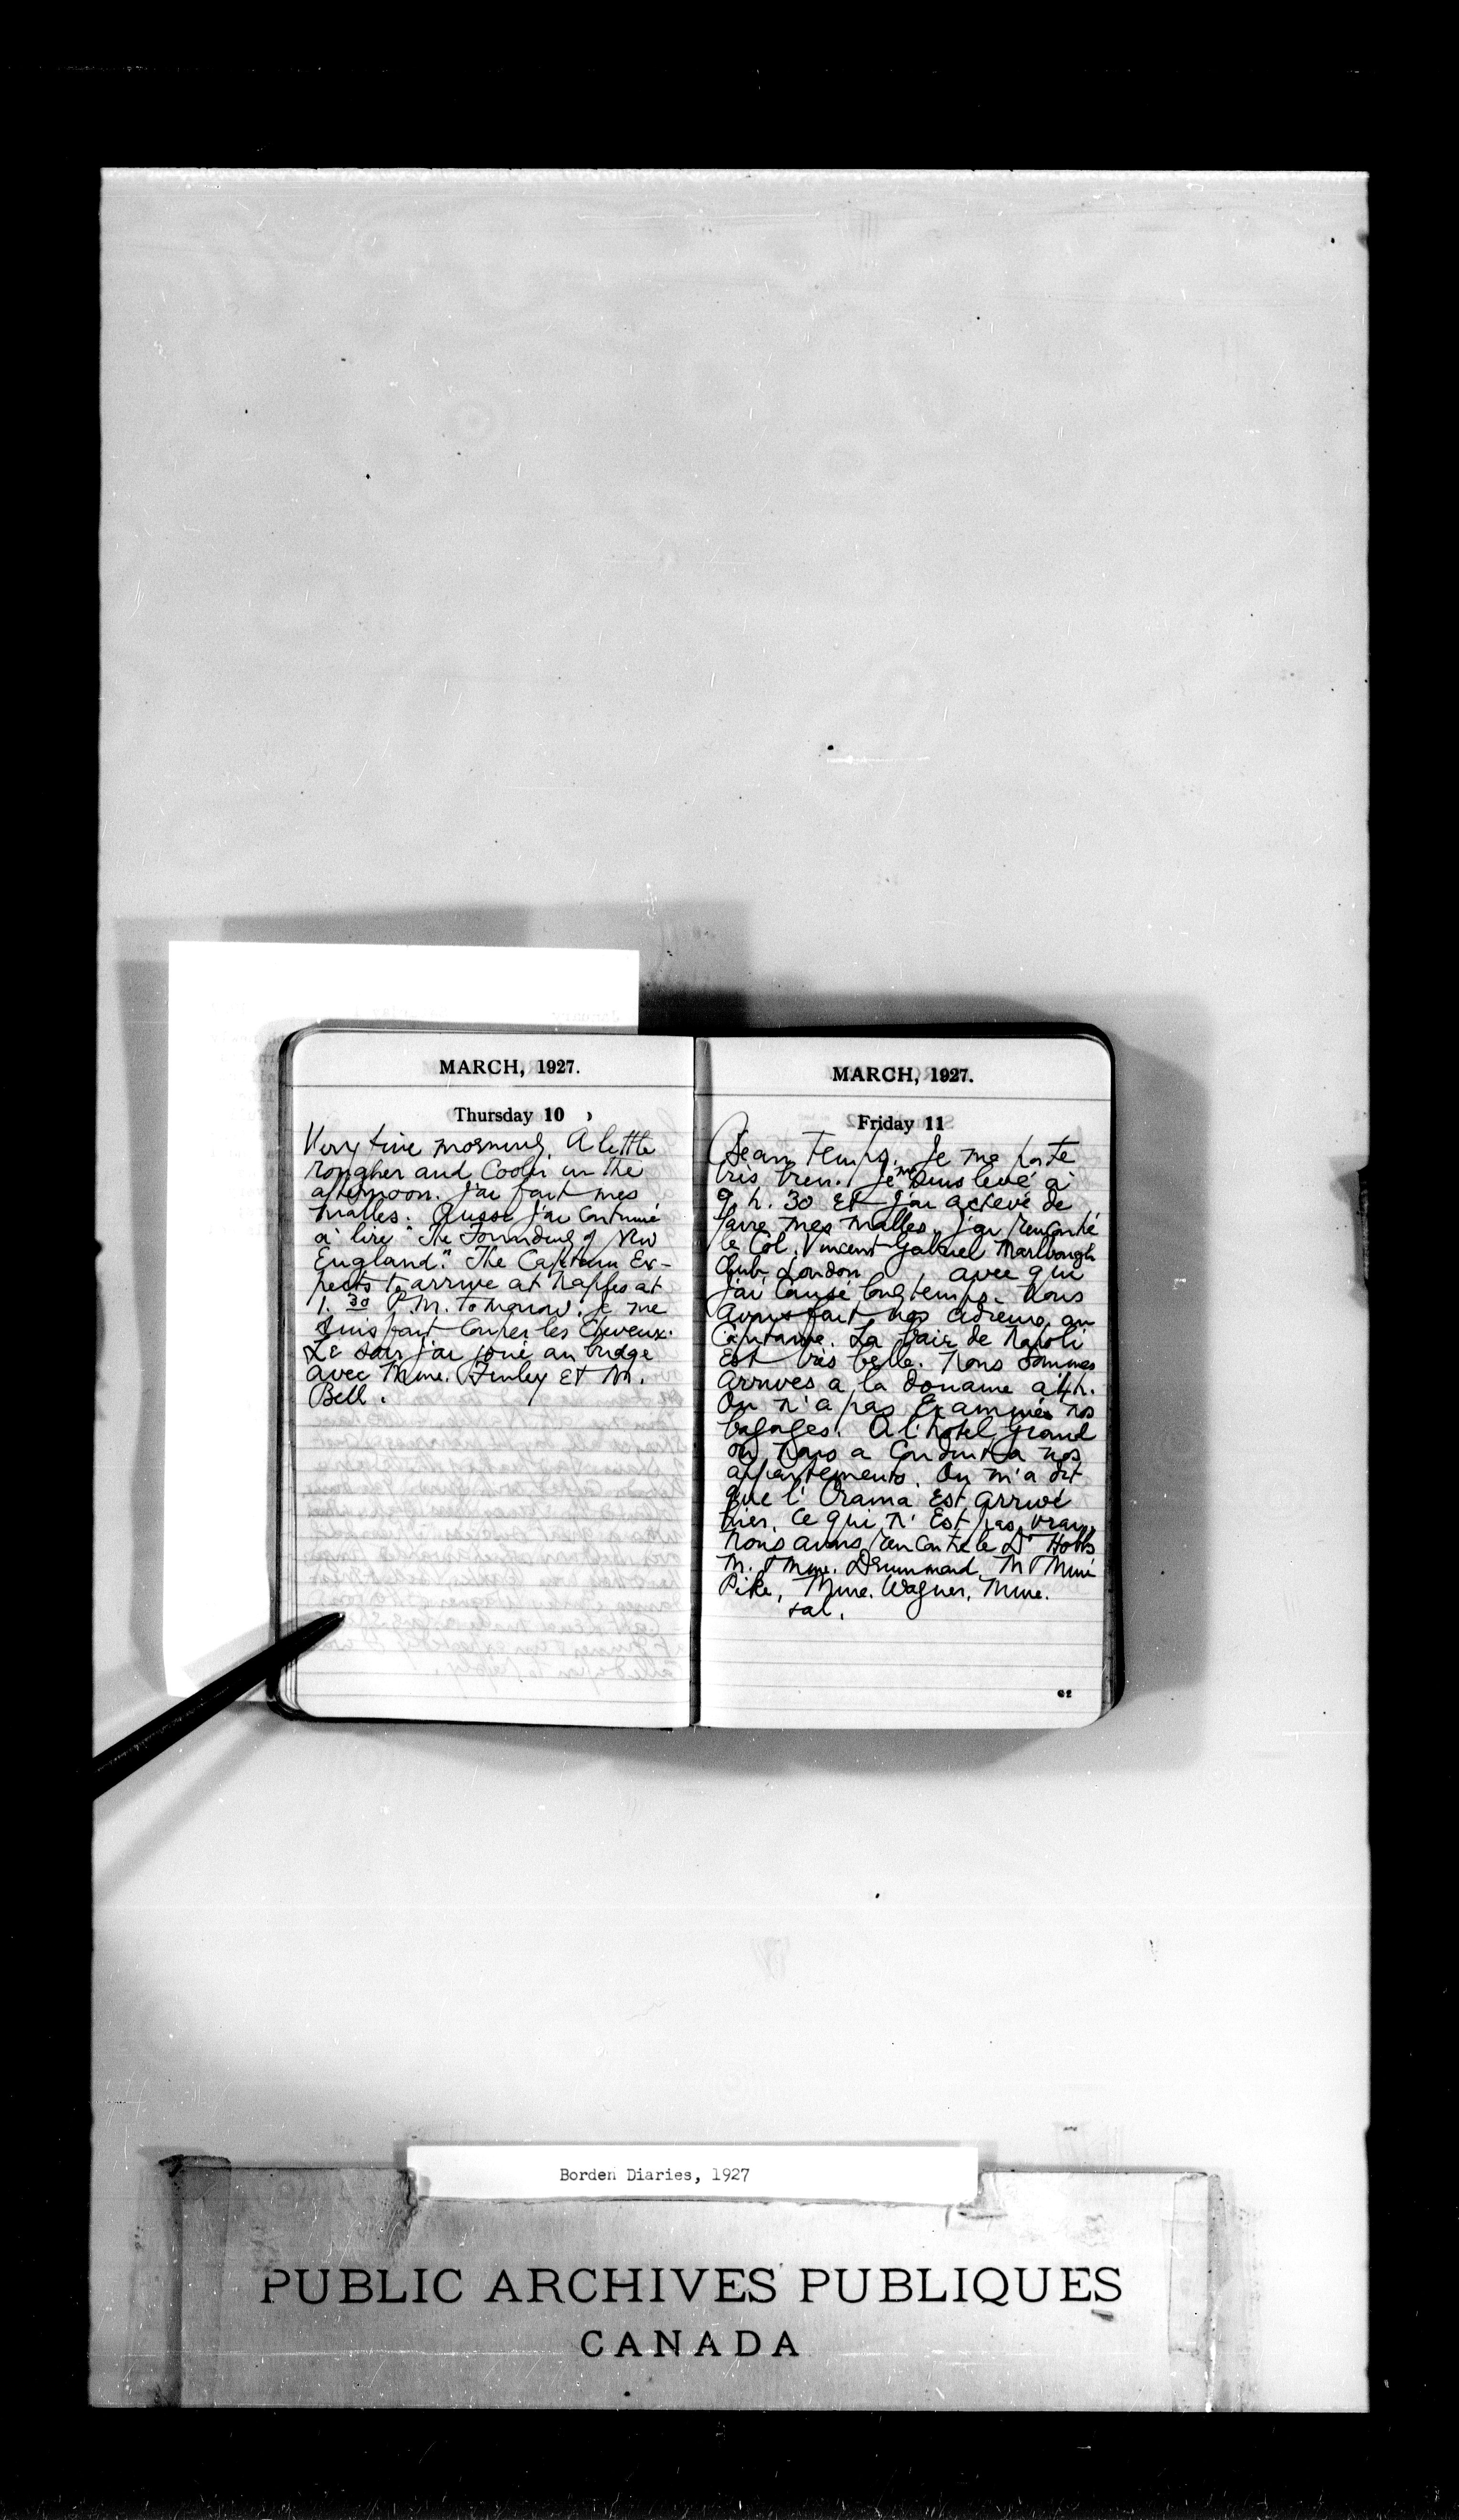 MARCH, 1927.
Thursday 10
Very fine morning. A little
rougher and cooler in the
afternoon. J'ai fait mes
malles. Aussi j'ai continué
à lire "The Founding of New
England." The Captain Ex-
pects to arrive at Naples at
1.30 P.M. tomorrow. Je me
suis fait couper les cheveux.
Le soir j'ai joué au bridge
avec Mme. Finley et M.
Bell.
MARCH, 1927.
Friday 11
Beau temps. Je me porte
très bien. Je me suis levé à
9 h. 30 et j'ai achevé de
faire mes malles. J'ai rencontré
le Col. Vincent Gabriel Marlborough
Club, London avec qui
j'ai causé longtemps. Nous
avons fait nos adieux au
Capitaine. La baie de Napoli
est très belle. Nous sommes
arrivés a la douane a 4 h.
On n'a pas examiné nos
bagages. A l'hotel Grand
on nous a conduit a nos
appartements. On m'a dit
que l'Orama est arrivé
hier, ce qui n'est pas vrai.
Nous avons rencontré le Dr Hobbs
M. & Mme. Drummond, M & Mme
Pike, Mme. Wagner, Mme.
62
Borden Diaries, 1927
PUBLIC ARCHIVES PUBLIQUES
CANADA